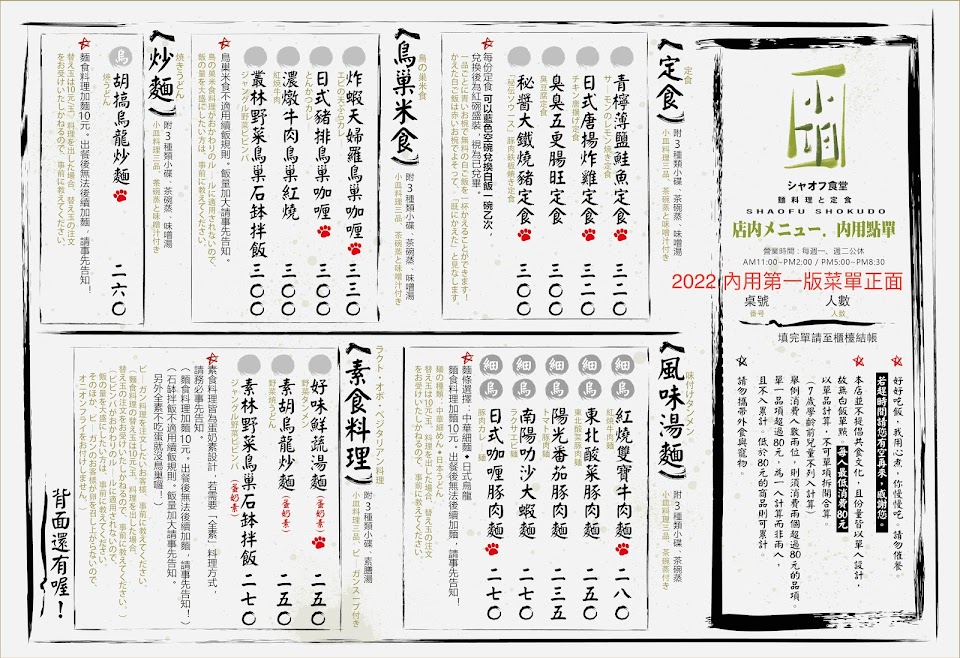 シャオフ食堂
麵料理と定食
SHAOFU SHOKUDO
店內メニュー．內用點單
營業時間：每週一、週二公休
AM11:00~PM2:00 / PM5:00~PM8:30
2022 內用第一版菜單正面
桌號 人數
番号 人数
填完單請至櫃檯結帳
好好吃飯，我用心煮，你慢慢吃。請勿催餐
若趕時間請您有空再來，感謝您。
本店並不提倡共食文化，且份量皆以單人設計，
故無白飯單點。每人最低消費80元
以單品計算，不可單項拆開合算。
（7歲學齡前兒童不列入計算）
舉例消費人數兩位，則須消費兩個超過80元的品項。
單一品項超過80元，為一人計算而非兩人，
且不入累計。低於80元的商品則可累計。
請勿攜帶外食與寵物。
定食
定食
附3種類小碟、茶碗蒸、味噌湯
小皿料理三品、茶碗蒸と味噌汁付き
青檸薄鹽鮭魚定食 三二〇
サーモンのレモン焼き定食
日式唐揚炸雞定食 三〇〇
チキン唐揚げ定食
臭臭五更腸旺定食 三〇〇
臭豆腐定食
秘醬大鐵燒豬定食 三〇〇
「秘伝ソース」豚肉鉄板焼き定食
每份定食 可以藍色空碗兌換白飯一碗乙次，
兌換後為紅碗盛裝，視為已兌畢。
一品ごとに青いお椀で無料の白ご飯を一杯かえることができます！
かえた白ご飯は赤いお椀でよそって、「既にかえた」と見なします。
鳥巢米食
鳥の巣米食
附3種類小碟、茶碗蒸、味噌湯
小皿料理三品、茶碗蒸と味噌汁付き
炸蝦天婦羅鳥巢咖喱 三三〇
エビの天ぷらカレー
日式豬排鳥巢咖喱 三〇〇
とんかつカレー
濃燉牛肉鳥巢紅燒 三〇〇
紅焼牛肉
叢林野菜鳥巢石缽拌飯 三〇〇
ジャングル野菜ビビンバ
鳥巢米食不適用續飯規則。飯量加大請事先告知。
鳥の巣米食料理がおかわりのルールに適用されないので、
飯の量を大盛にしたい方は、事前に教えてください。
炒麵
焼きうどん
附3種類小碟、茶碗蒸、味噌湯
小皿料理三品、茶碗蒸と味噌汁付き
烏 胡搞烏龍炒麵 二六〇
焼うどん
麵食料理加麵10元。出餐後無法後續加麵，請事先告知！
替え玉は10元（玉）料理を出した場合、替え玉の注文
をお受けいたしかねるので、事前に教えてください。
風味湯麵
味付けタンメン
附3種類小碟、茶碗蒸
小皿料理三品、茶碗蒸付き
細 烏 紅燒雙寶牛肉麵 二八〇
紅焼牛肉麺
細 烏 東北酸菜豚肉麵 二五〇
東北酸菜豚肉麺
細 烏 陽光番茄豚肉麵 二三五
トマト豚肉麺
細 烏 南陽叻沙大蝦麵 二七〇
ラクサエビ麺
細 烏 日式咖喱豚肉麵 二七〇
豚肉カレー麺
麵條選擇：中華細麵・日式烏龍
麵食料理加麵10元。出餐後無法後續加麵，請事先告知！
麺の種類：中華細めん・日本うどん
替え玉は10元（玉）、料理を出した場合、替え玉の注文
をお受けいたしかねるので、事前に教えてください。
素食料理
ラクト・オボ・ベジタリアン料理
附3種類小碟、素膳湯
小皿料理三品、ビーガンスープ付き
好味鮮蔬湯麵（蛋奶素） 二五〇
野菜タンメン
素胡烏龍炒麵（蛋奶素） 二五〇
野菜焼うどん
素林野菜鳥巢石缽拌飯（蛋奶素） 二七〇
ジャングル野菜ビビンバ
素食料理皆為蛋奶素設計，若需要「全素」料理方式，
請務必事先告知。
（麵食料理加麵10元。出餐後無法後續加麵，請事先告知！）
（石缽拌飯不適用續飯規則。飯量加大請事先告知。）
另外全素不吃蛋就沒鳥巢囉！
ビーガン料理を注文したいお客様、事前に教えてください。
（麺食料理の替え玉は10元/玉、料理を出した場合、
替え玉の注文をお受けいたしかねるので、事前に教えてください。）
（ビビンバがおかわりのルールに適用されないので、
飯の量を大盛にしたい方は、事前に教えてください。）
そのほか、ビーガンのお客様が卵を召し上がらないので、
オニオンフライをお付けしません。
背面還有喔！